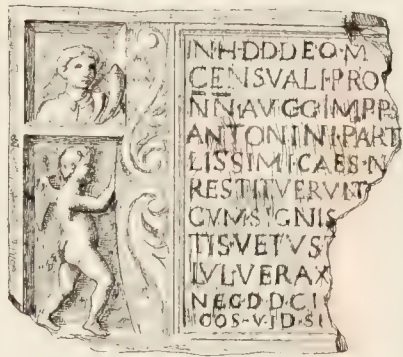 IN·H·D·D·DEO·M
CENSVALI·PRO
NN·AVGG·IMPP
ANTONINI·PART
LISSIMI·CAES·N
RESTITVERVNT
CVM·SIGNIS
TIS·VETVST
IVL·VERAX
NEG·D·D·C·I
COS·V·ID·SI